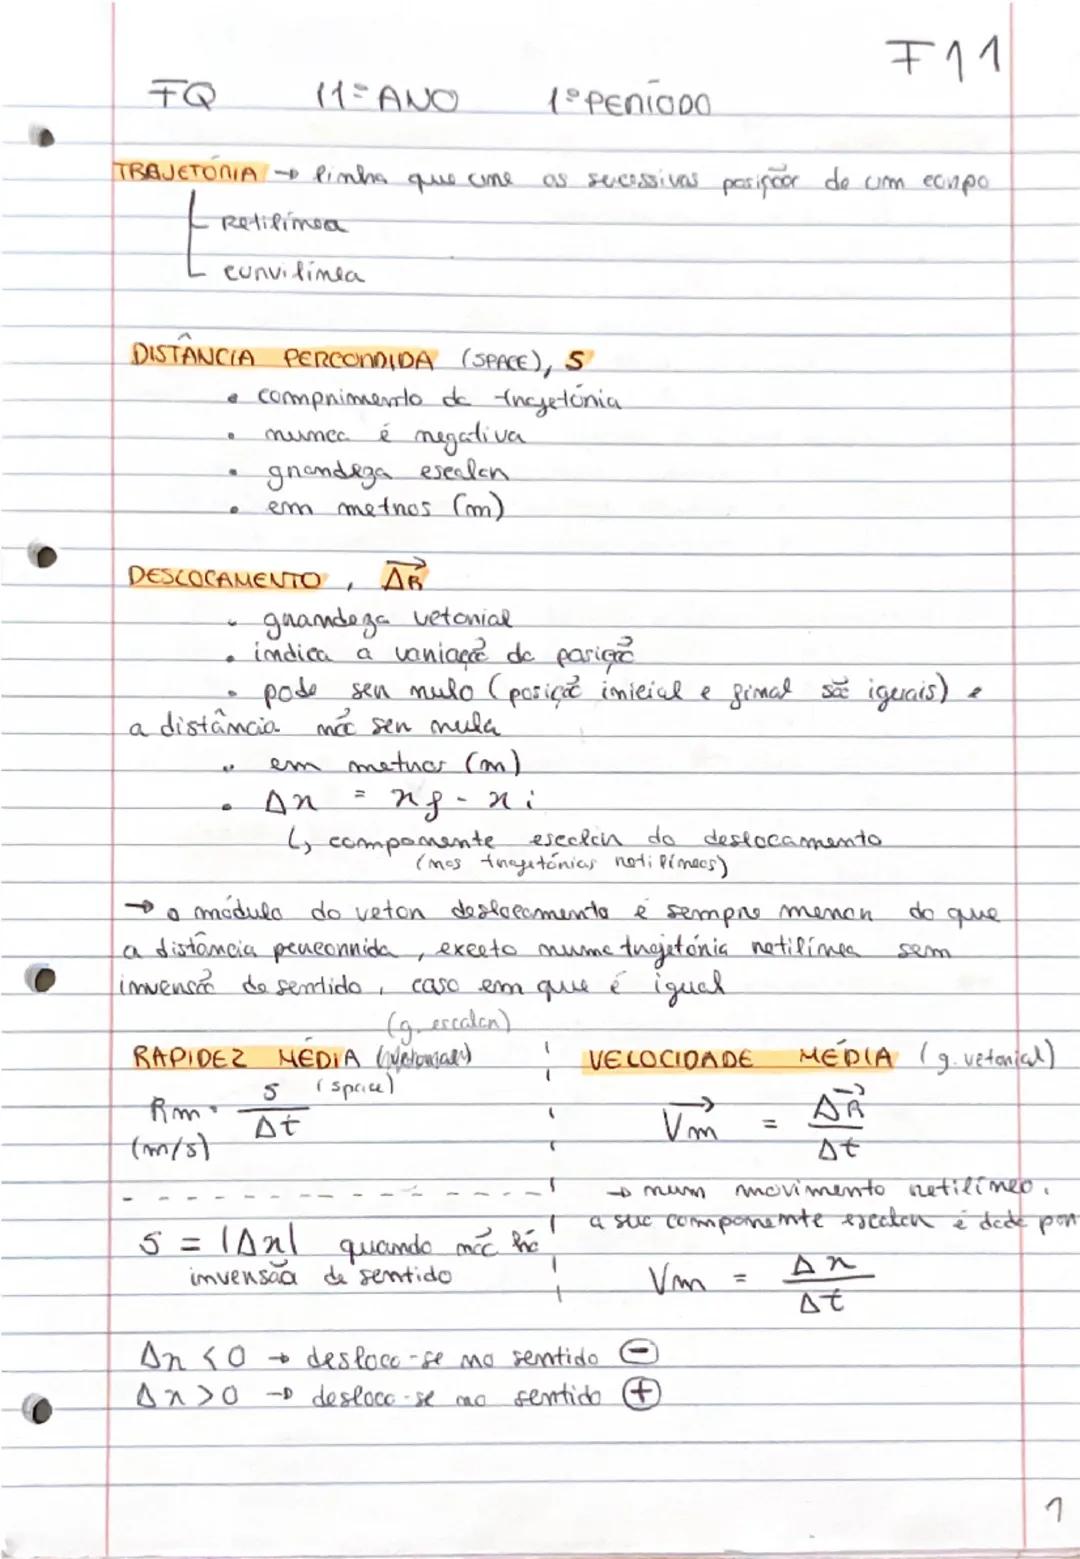 F11
FQ 11º ANO 1º PERÍODO
TRAJETÓRIA → linha que une as sucessivas posições de um corpo
Retilínea
curvilínea
DISTÂNCIA PERCORRIDA (SPACE), S
• comprimento da trajetória
• nunca é negativa
• grandeza escalar
• em metros (m)
DESLOCAMENTO, Δr⃗
• grandeza vetorial
• indica a variação de posição
• pode ser nulo (posição inicial e final são iguais) e
a distância não ser nula
• em metros (m)
• Δx = xf - xi
↳ componente escalar do deslocamento
(nas trajetórias retilíneas)
→ o módulo do vetor deslocamento é sempre menor do que
a distância percorrida, exceto numa trajetória retilínea sem
inversão de sentido, caso em que é igual
(g. escalar)
RAPIDEZ MÉDIA (vetorial) VELOCIDADE MÉDIA (g. vetorial)
Rm = S (space) / Δt V⃗m = Δr⃗ / Δt
(m/s)
→ num movimento retilíneo,
a sua componente escalar é dada por
S = |Δx| quando não há
inversão de sentido Vm = Δx / Δt
Δx < 0 → desloca-se no sentido ⊖
Δx > 0 → desloca-se no sentido ⊕
1